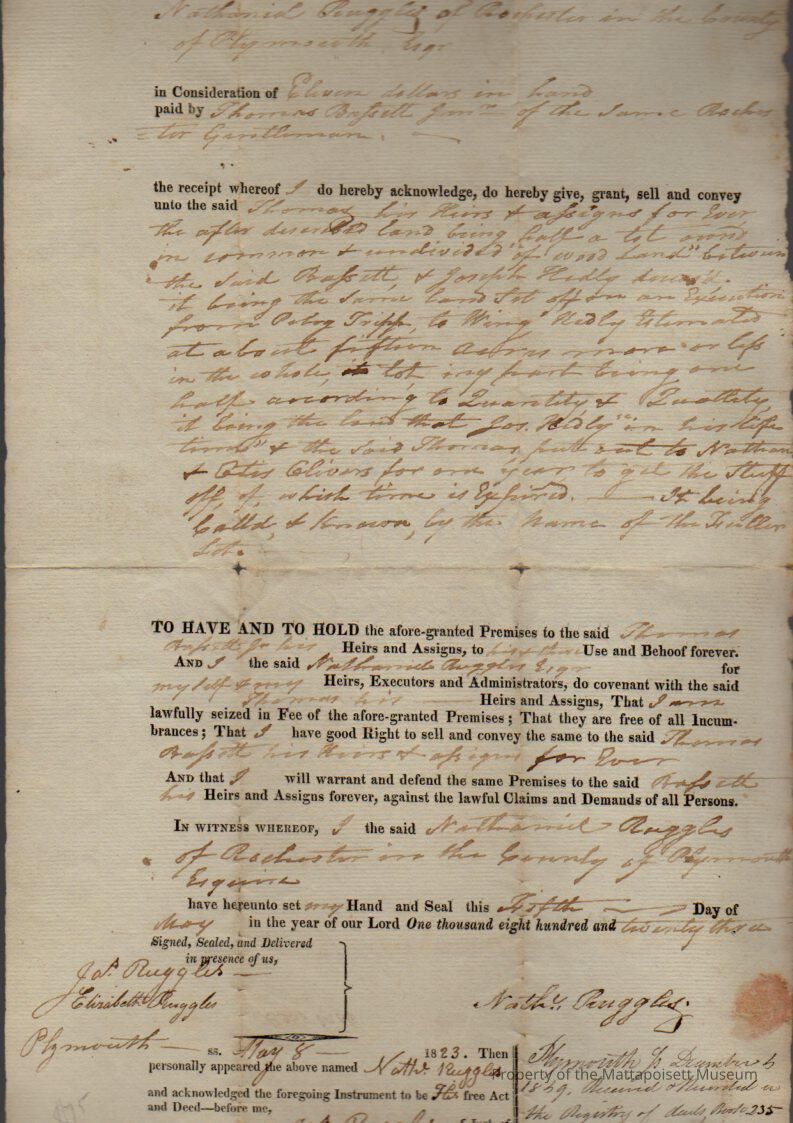 Nathaniel Ruggles of Rochester in the County
of Plymouth Esqr
in Consideration of Eleven dollars in hand
paid by Thomas Bassett Junr of the Same Roches
=ter Gentleman.
the receipt whereof I do hereby acknowledge, do hereby give, grant, sell and convey
unto the said Thomas his Heirs & assigns for Ever
the after described land being half a lot
in common & undivided of "wood Land" between
the Said Bassett, & Joseph Hedly deces'd.
it being the Same land Set off on an Execution
from Tripp, to Wing Hedly Estimated
at about fifteen acres more or less
in the whole, lot, my part being one
half according to Quantity & Quallety,
it being the land that Jos. Hedly "in his life
time" & the Said Thomas put out to Nathan
& Otis Clivers for one year to git the Stuff
off, of, which time is Expired. — It being
Calld, & Known, by the Name of the Fuller
Lot.
TO HAVE AND TO HOLD the afore-granted Premises to the said Thomas
Bassett Jr his Heirs and Assigns, to his & their Use and Behoof forever.
AND I the said Nathaniel Ruggles Esqr for
my Self & my Heirs, Executors and Administrators, do covenant with the said
Thomas his — Heirs and Assigns, That I am
lawfully seized in Fee of the afore-granted Premises; That they are free of all Incum-
brances; That I have good Right to sell and convey the same to the said Thomas
Bassett his Heirs & assigns for Ever
AND that I will warrant and defend the same Premises to the said Bassett
his Heirs and Assigns forever, against the lawful Claims and Demands of all Persons.
IN WITNESS WHEREOF, I the said Nathaniel Ruggles
of Rochester in the County of Plymouth
Esquire
have hereunto set my Hand and Seal this Fifth — Day of
May in the year of our Lord One thousand eight hundred and twenty three
Signed, Sealed, and Delivered
in presence of us,
Jas. Ruggles
Elizabeth Ruggles
Nathl. Ruggles
Plymouth — ss. May 8 — 1823. Then
personally appeared the above named Nathl. Ruggles
and acknowledged the foregoing Instrument to be His free Act
and Deed—before me,
Plymouth Ss December
1829. Received & Recorded in
the Registry of deeds, Book 235
Property of the Mattapoisett Museum